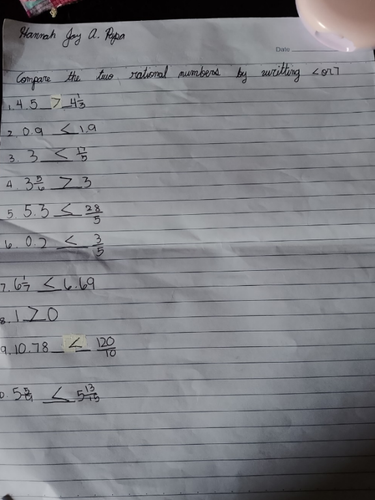 Hannah Joy A. Papa
Date
Compare the two rational numbers by writting < or >
1. 4.5 > 4 1/3
2. 0.9 < 1.9
3. 3 < 17/5
4. 3 5/6 > 3
5. 5.3 < 28/5
6. 0.2 < 3/5
7. 6 1/7 < 6.69
8. 1 > 0
9. 10.78 < 120/10
5 5/9 < 5 13/15